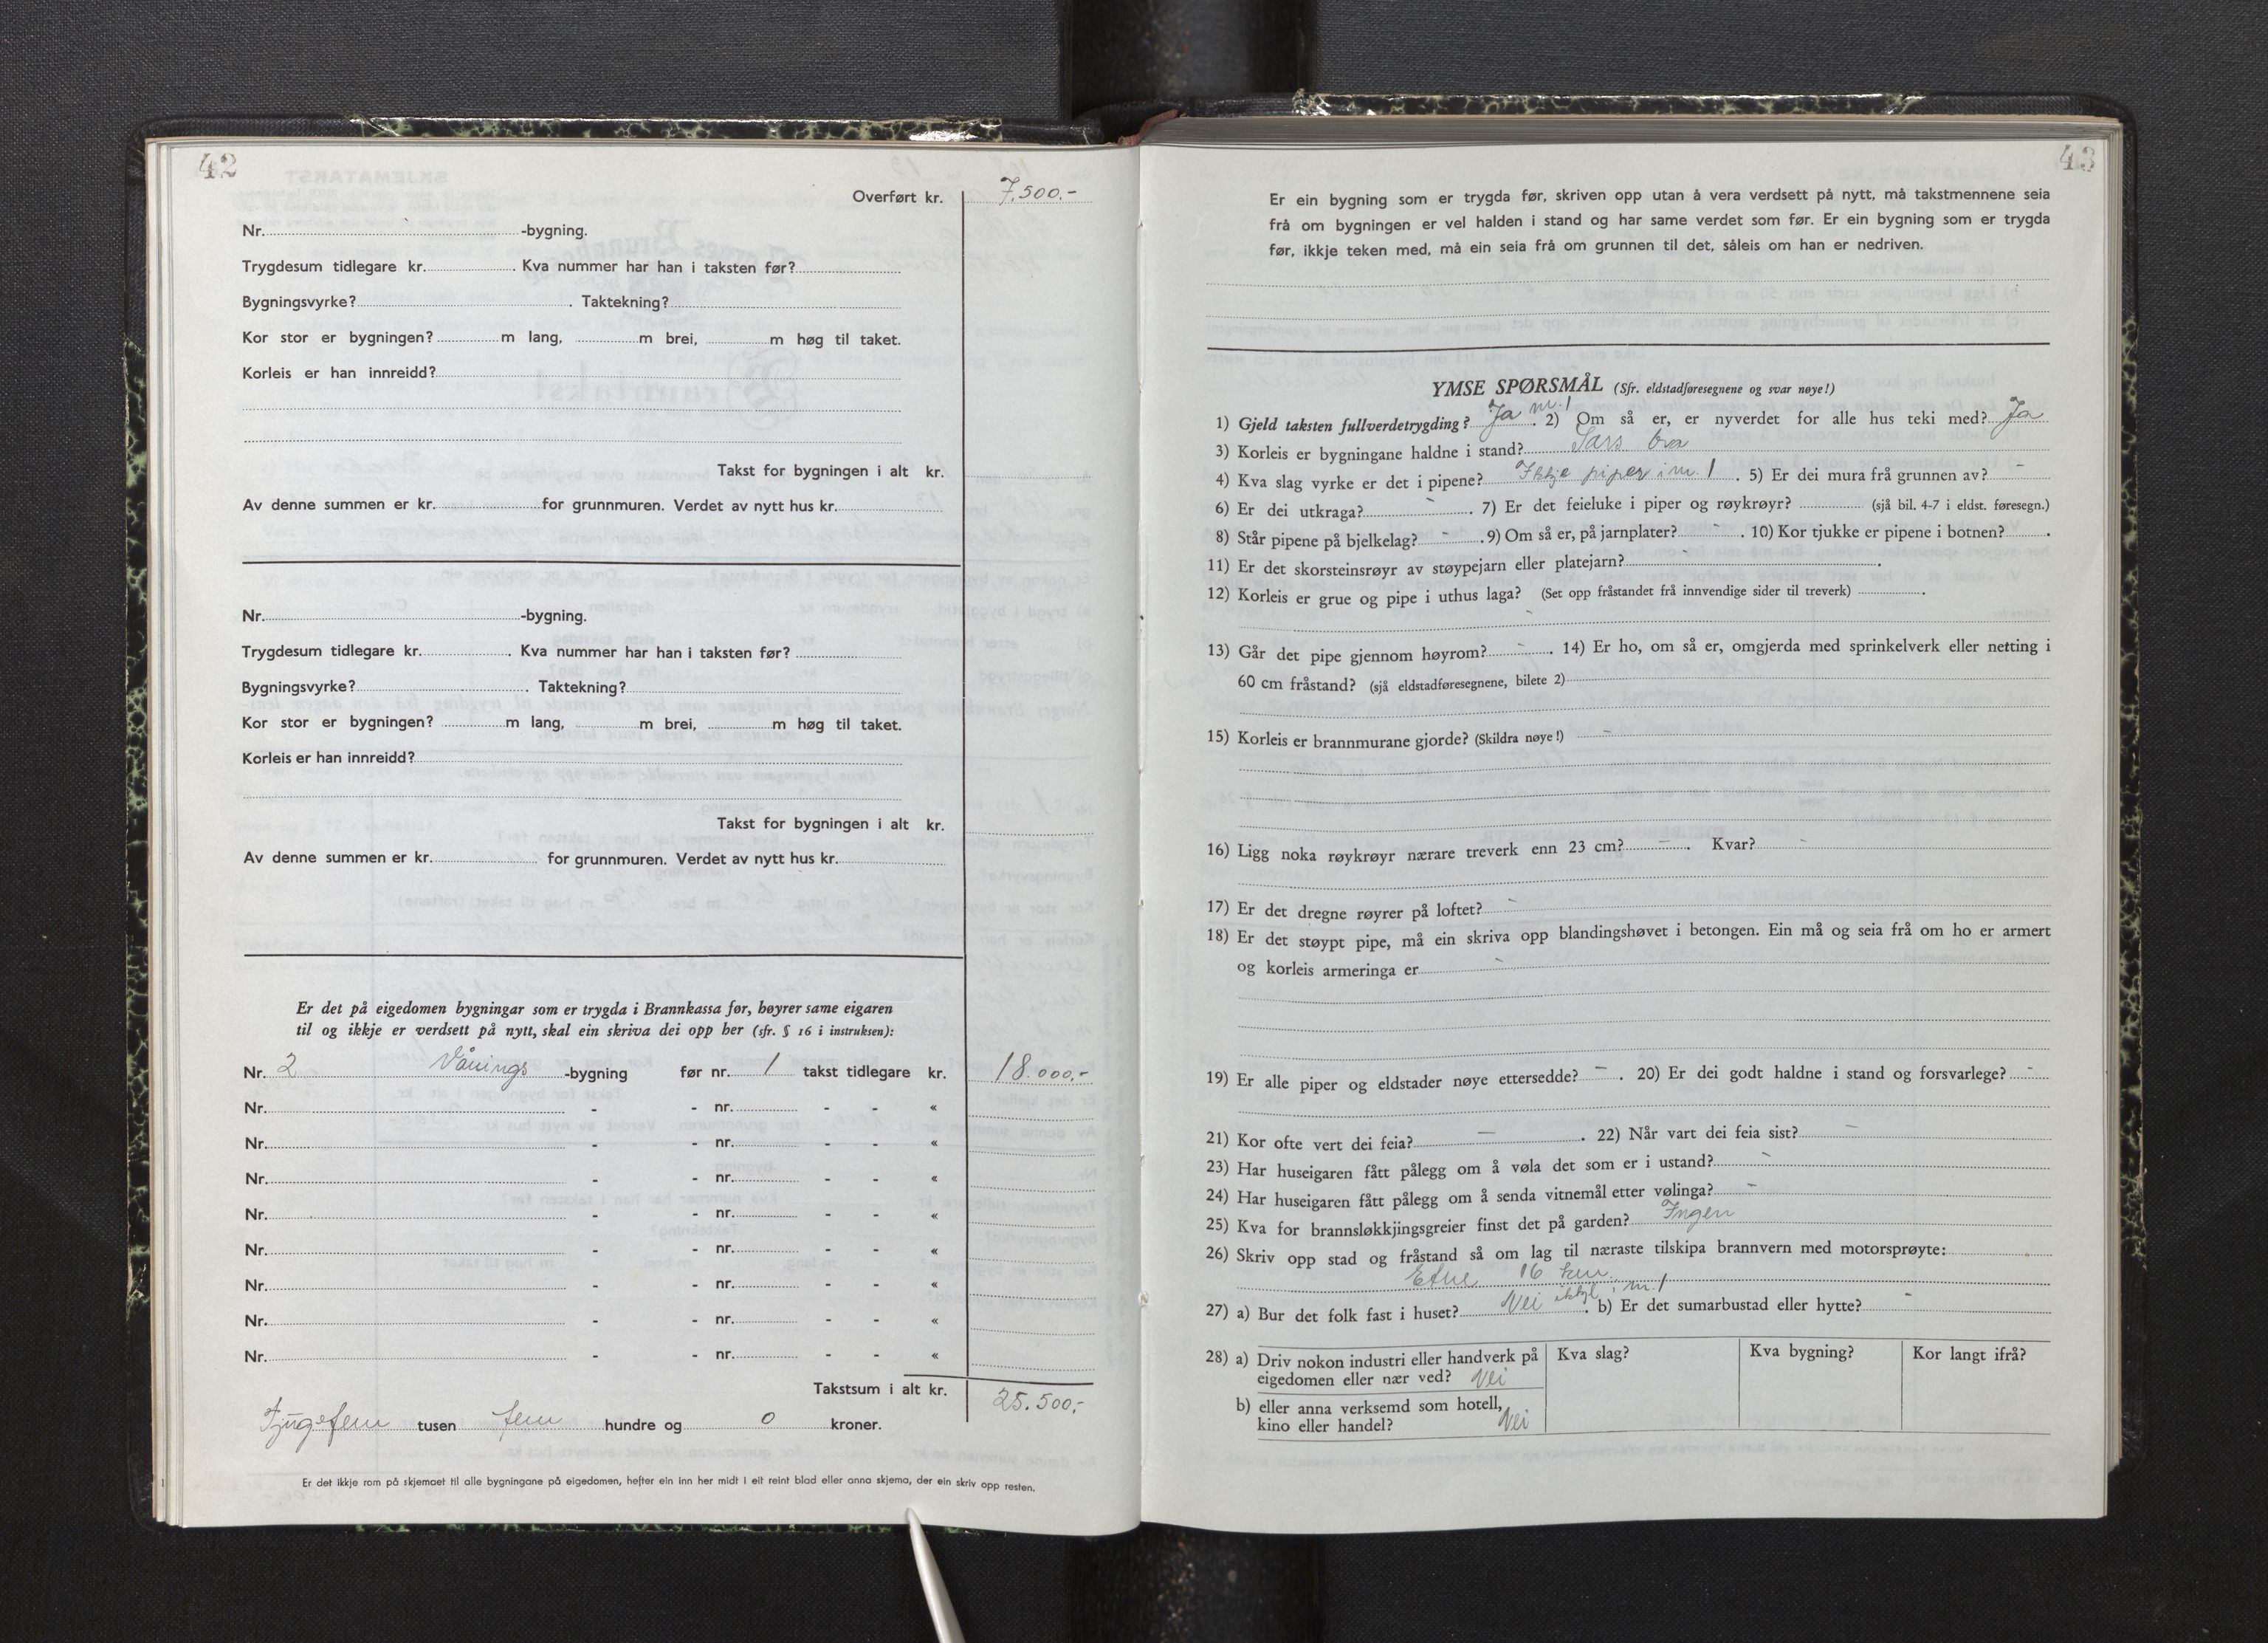 42
Overført kr. 7.500.-
Nr. -bygning.
Trygdesum tidlegare kr. . Kva nummer har han i taksten før?
Bygningsvyrke? . Taktekning?
Kor stor er bygningen? m lang, m brei, m høg til taket.
Korleis er han innreidd?
Takst for bygningen i alt kr.
Av denne summen er kr. for grunnmuren. Verdet av nytt hus kr.
Nr. -bygning.
Trygdesum tidlegare kr. . Kva nummer har han i taksten før?
Bygningsvyrke? . Taktekning?
Kor stor er bygningen? m lang, m brei, m høg til taket.
Korleis er han innreidd?
Takst for bygningen i alt kr.
Av denne summen er kr. for grunnmuren. Verdet av nytt hus kr.
Er det på eigedomen bygningar som er trygda i Brannkassa før, høyrer same eigaren
til og ikkje er verdsett på nytt, skal ein skriva dei opp her (sfr. § 16 i instruksen):
Nr. 2 Vånings -bygning før nr. 1 takst tidlegare kr. 18.000,-
Nr. - - nr. - - «
Nr. - - nr. - - «
Nr. - - nr. - - «
Nr. - - nr. - - «
Nr. - - nr. - - «
Nr. - - nr. - - «
Nr. - - nr. - - «
Nr. - - nr. - - «
Takstsum i alt kr. 25.500,-
Tjugefem tusen fem hundre og 0 kroner.
Er det ikkje rom på skjemaet til alle bygningane på eigedomen, hefter ein inn her midt i eit reint blad eller anna skjema, der ein skriv opp resten.
43
Er ein bygning som er trygda før, skriven opp utan å vera verdsett på nytt, må takstmennene seia
frå om bygningen er vel halden i stand og har same verdet som før. Er ein bygning som er trygda
før, ikkje teken med, må ein seia frå om grunnen til det, såleis om han er nedriven.
YMSE SPØRSMÅL (Sfr. eldstadføresegnene og svar nøye!)
1) Gjeld taksten fullverdetrygding? Ja nr. 1 . 2) Om så er, er nyverdet for alle hus teki med? Ja
3) Korleis er bygningane haldne i stand? Sars bra
4) Kva slag vyrke er det i pipene? Ikkje piper i nr. 1 . 5) Er dei mura frå grunnen av? -
6) Er dei utkraga? - . 7) Er det feieluke i piper og røykrøyr? (sjå bil. 4-7 i eldst. føresegn.)
8) Står pipene på bjelkelag? - . 9) Om så er, på jarnplater? - . 10) Kor tjukke er pipene i botnen? .
11) Er det skorsteinsrøyr av støypejarn eller platejarn? - .
12) Korleis er grue og pipe i uthus laga? (Set opp fråstandet frå innvendige sider til treverk) .
-
13) Går det pipe gjennom høyrom? - . 14) Er ho, om så er, omgjerda med sprinkelverk eller netting i
60 cm fråstand? (sjå eldstadføresegnene, bilete 2) -
15) Korleis er brannmurane gjorde? (Skildra nøye!) -
16) Ligg noka røykrøyr nærare treverk enn 23 cm? - . Kvar? -
17) Er det dregne røyrer på loftet? -
18) Er det støypt pipe, må ein skriva opp blandingshøvet i betongen. Ein må og seia frå om ho er armert
og korleis armeringa er -
19) Er alle piper og eldstader nøye ettersedde? - . 20) Er dei godt haldne i stand og forsvarlege? -
21) Kor ofte vert dei feia? - . 22) Når vart dei feia sist? -
23) Har huseigaren fått pålegg om å vøla det som er i ustand? -
24) Har huseigaren fått pålegg om å senda vitnemål etter vølinga? -
25) Kva for brannsløkkjingsgreier finst det på garden? Ingen
26) Skriv opp stad og fråstand så om lag til næraste tilskipa brannvern med motorsprøyte:
Etne 16 km.
27) a) Bur det folk fast i huset? Nei ikkje i nr. 1 . b) Er det sumarbustad eller hytte? -
28) a) Driv nokon industri eller handverk på eigedomen eller nær ved? Nei
Kva slag? Kva bygning? Kor langt ifrå?
b) eller anna verksemd som hotell,
kino eller handel? Nei